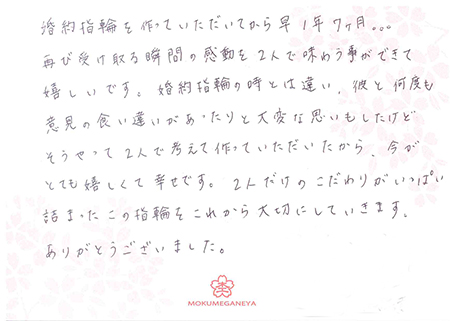 婚約指輪を作っていただいてから早1年7ヶ月。。。
再び受け取る瞬間の感動を2人で味わう事ができて
嬉しいです。婚約指輪の時とは違い、彼と何度も
意見の食い違いがあったりと大変な思いもしたけど
そうやって2人で考えて作っていただいたから、今が
とても嬉しくて幸せです。2人だけのこだわりがいっぱい
詰まったこの指輪をこれから大切にしていきます。
ありがとうございました。
MOKUMEGANEYA